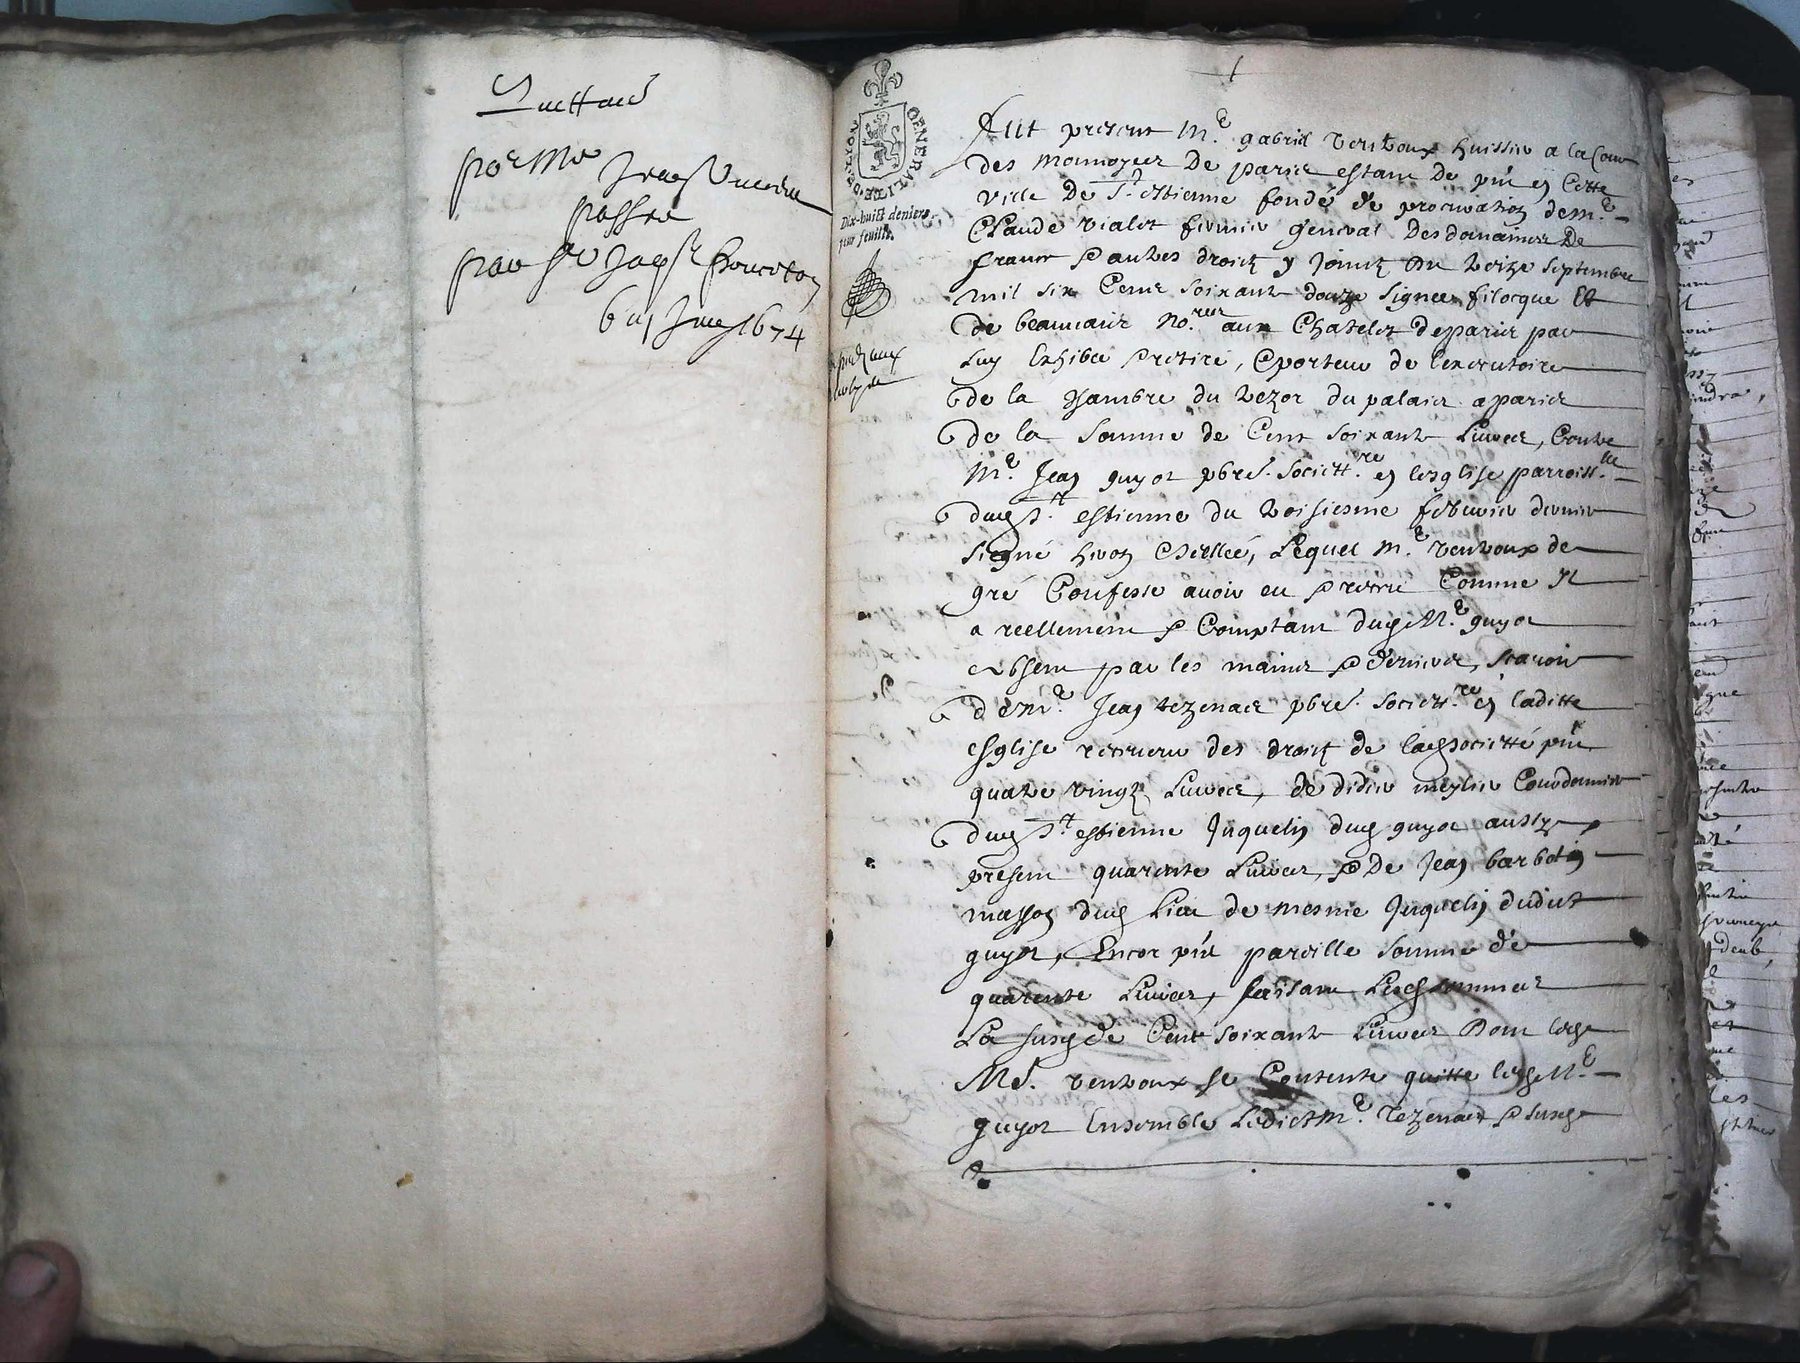 Quittance
pour Me Jean
passée
par Sr Jacq
6 Juin 1674
GENERALITE DE LYON
Dix-huit deniers
pour feuille.
Fut present Me gabriel ventoux huissier a la Cour
des monnoyes De paris estant De pnt en Cette
ville De St estienne fondé de procuration de Me
Claude vialet fermier general Des domaines De
france & autres droictz y joinctz Du treize septembre
mil six Cens soixante douze signee filocque Et
de beauvais Nores aux Chatelet de paris par
luy Exhibée & retiré, & porteur de lexecutoire
de la Chambre du trezor du palais a paris
de la somme de Cent soixante Livres, Contre
Me Jean guyot pbre. societtre en lesglise parroissle
dud St estienne du troisiesme febvrier dernier
signé & scellée, Lequel Me ventoux de
gré Confesse avoir eu & receu Comme Il
a reellement & Comptant dud Me guyot
absent par les mains & deniers, scavoir
de Me Jean tezenas pbre. societtre en laditte
Esglise receveur des droictz de lad societté pnt
quatre vingtz Livres, de didier meylier Courdonnier
dud St estienne Inquelin dud guyot aussy
present quarente Livres, & De Jean barbotin
masson dud lieu de mesme Inquelin dudict
guyot, Encor pnt pareille somme de
quarente Livres, faisant Lesd sommes
La susd de Cent soixante Livres Dont led
Me. ventoux se Contente quitte led Me
guyot Ensemble Ledict Me Tezenas & susd